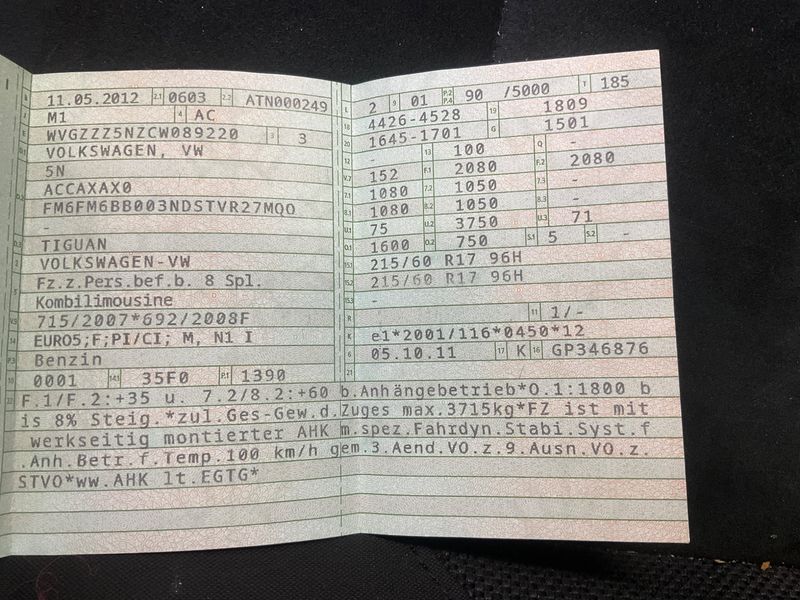 B 11.05.2012 2.1 0603 2.2 ATN000249
J M1 4 AC
E WVGZZZ5NZCW089220 3 3
D.1 VOLKSWAGEN, VW
5N
D.2 ACCAXAX0
FM6FM6BB003NDSTVR27MQO
-
D.3 TIGUAN
2 VOLKSWAGEN-VW
5 Fz.z.Pers.bef.b. 8 Spl.
Kombilimousine
V.9 715/2007*692/2008F
14 EURO5;F;PI/CI; M, N1 I
P.3 Benzin
10 0001 14.1 35F0 P.1 1390
L 2 9 01 P.2 P.4 90 /5000 T 185
18 4426-4528 19 1809
20 1645-1701 G 1501
12 - 13 100 Q -
V.7 152 F.1 2080 F.2 2080
7.1 1080 7.2 1050 7.3 -
8.1 1080 8.2 1050 8.3 -
U.1 75 U.2 3750 U.3 71
O.1 1600 O.2 750 S.1 5 S.2 -
15.1 215/60 R17 96H
15.2 215/60 R17 96H
15.3 -
R 11 1/-
K e1*2001/116*0450*12
6 05.10.11 17 K 16 GP346876
21
22 F.1/F.2:+35 u. 7.2/8.2:+60 b.Anhängebetrieb*O.1:1800 b
is 8% Steig.*zul.Ges-Gew.d.Zuges max.3715kg*FZ ist mit
werkseitig montierter AHK m.spez.Fahrdyn.Stabi.Syst.f
.Anh.Betr.f.Temp.100 km/h gem.3.Aend.VO.z.9.Ausn.VO.z.
STVO*ww.AHK lt.EGTG*